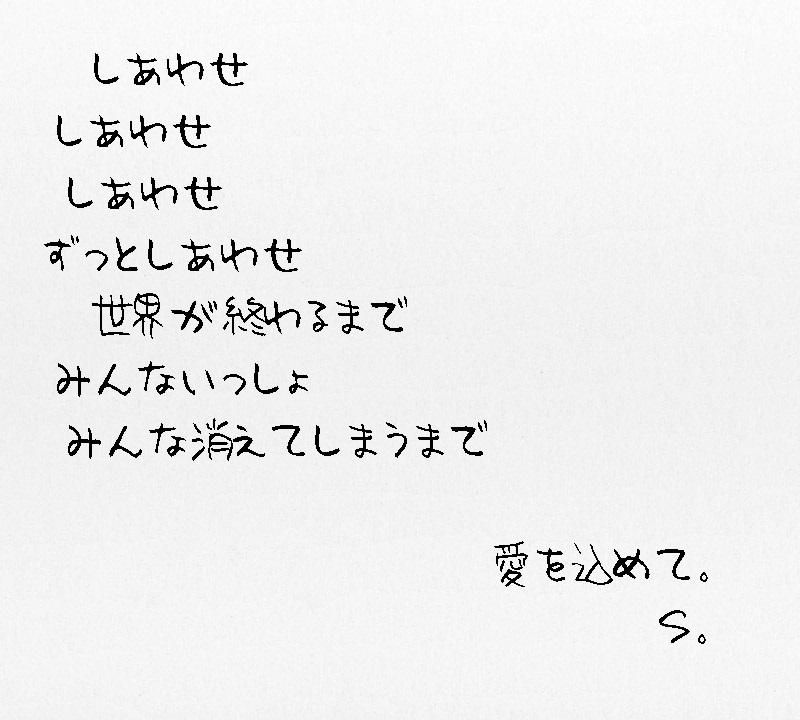 しあわせ
しあわせ
しあわせ
ずっとしあわせ
世界が終わるまで
みんないっしょ
みんな消えてしまうまで
愛を込めて。
S。